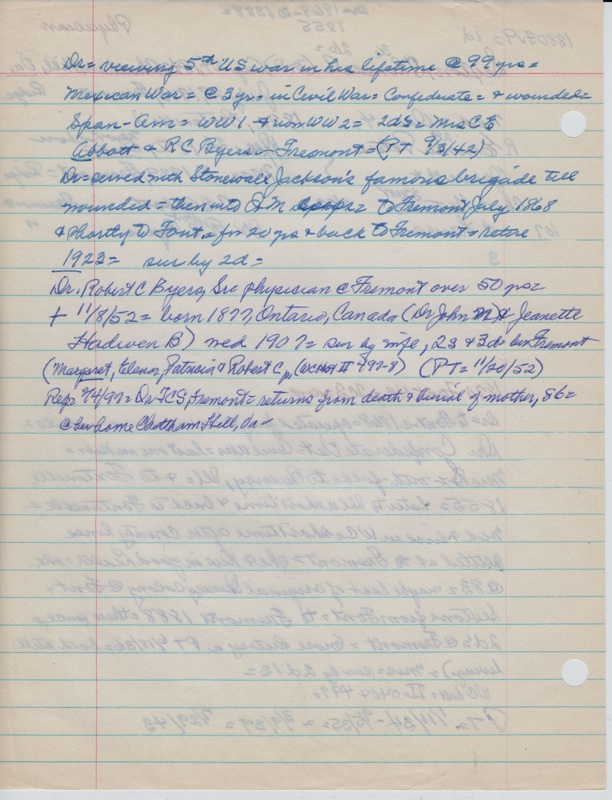 Dr= viewing 5th US war in his lifetime @ 99 yrs=
Mexican War= @ 3 yrs= in Civil War= Confederate= & wounded=
Span-Am= WW1 & now WW2= 2ds= Mrs C E
Abbott & R C Byers= Fremont= (PT 9/3/42)
Dr=served with Stonewall Jackson's famous brigade till
wounded= then into QM Corps= to Fremont July 1868
& shortly to Font.= for 20 yrs & back to Fremont= retire
1923= sur by 2d=
Dr. Robert C Byers, Sr= physician @ Fremont over 50 yrs=
+ 11/8/52= born 1877, Ontario, Canada (Dr John & Jeanette
Hadwen B) wed 1907= sur by wife, 2s & 3ds Fremont
(Margaret, Elenor, Patricia & Robert C jr II 497-8) (PT= 11/20/52)
Rep= 9/4/97= Dr TCS, Fremont= returns from death & burial of mother, 86=
@ her home Chatham Hill, Va=